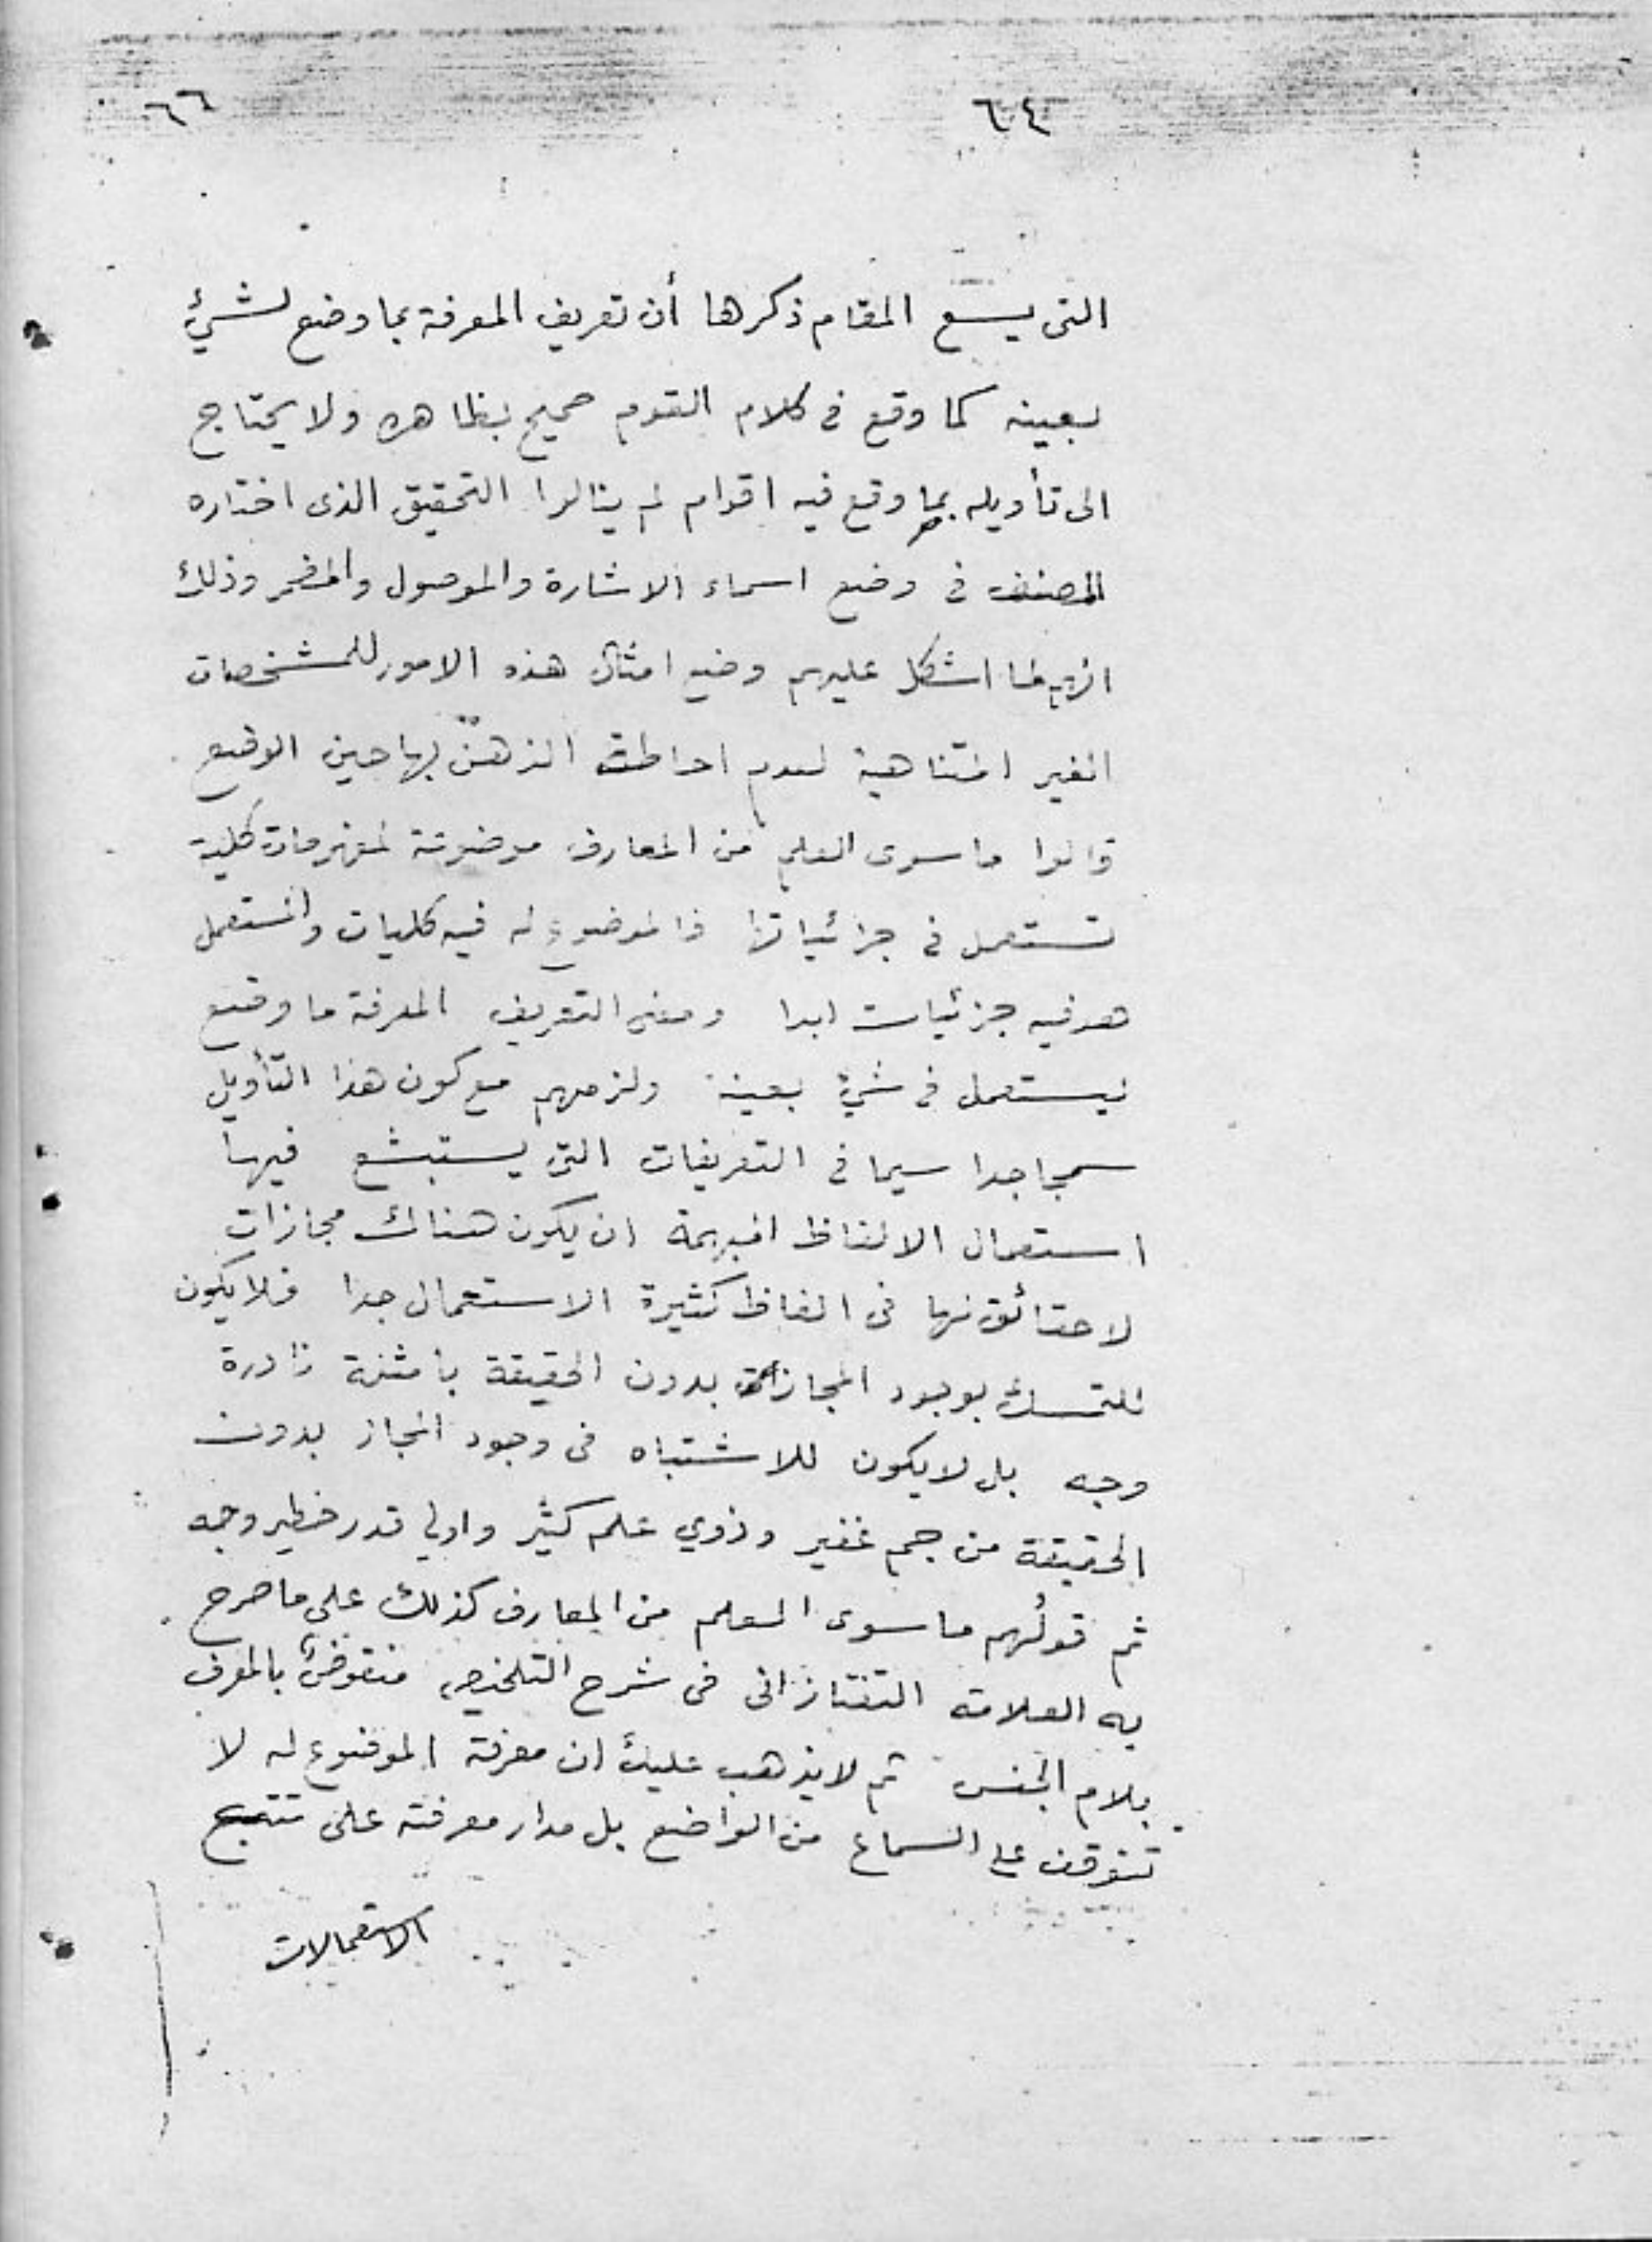 ٦٤ ٦٦
التى يسع المقام ذكرها أن تعريف المعرفة بما وضع لشئ
بعينه كما وقع فى كلام القوم صحيح بظاهره ولا يحتاج
الى تأويله بما وقع فيه اقوام لم ينالوا التحقيق الذى اختاره
المصنف فى وضع اسماء الاشارة والموصول والمضمر وذلك
انهم لما اشكل عليهم وضع امثال هذه الامور للمشخصات
الغير المتناهية لعدم احاطة الذهن بها حين الوضع
قالوا ما سوى العلم من المعارف موضوعة لمفهومات كلية
تستعمل فى جزائياتها فالموضوع له فيه كليات والمستعمل
هو فيه جزئيات ابدا ومعنى التعريف المعرفة ما وضع
ليستعمل فى شئ بعينه ولزمهم مع كون هذا التأويل
سمجا جدا سيما فى التعريفات التى يستبشع فيها
استعمال الالفاظ المبهمة ان يكون هناك مجازات
لا حقائق لها فى الفاظ كثيرة الاستعمال جدا فلا يكون
للتمسك بوجود المجاز بدون الحقيقة بامثلة نادرة
وجه بل لا يكون للاشتباه فى وجود المجاز بدون
الحقيقة من جم غفير وذوي علم كثير واولي قدر خطير وجه
ثم قولهم ما سوى العلم من المعارف كذلك على ما صرح
به العلامة التفتازانى فى شرح التلخيص منقوض بالمعرف
بلام الجنس ثم لا يذهب عليك ان معرفة الموضوع له لا
تتوقف على السماع من الواضع بل مدار معرفته على تتبع
الاستعمالات